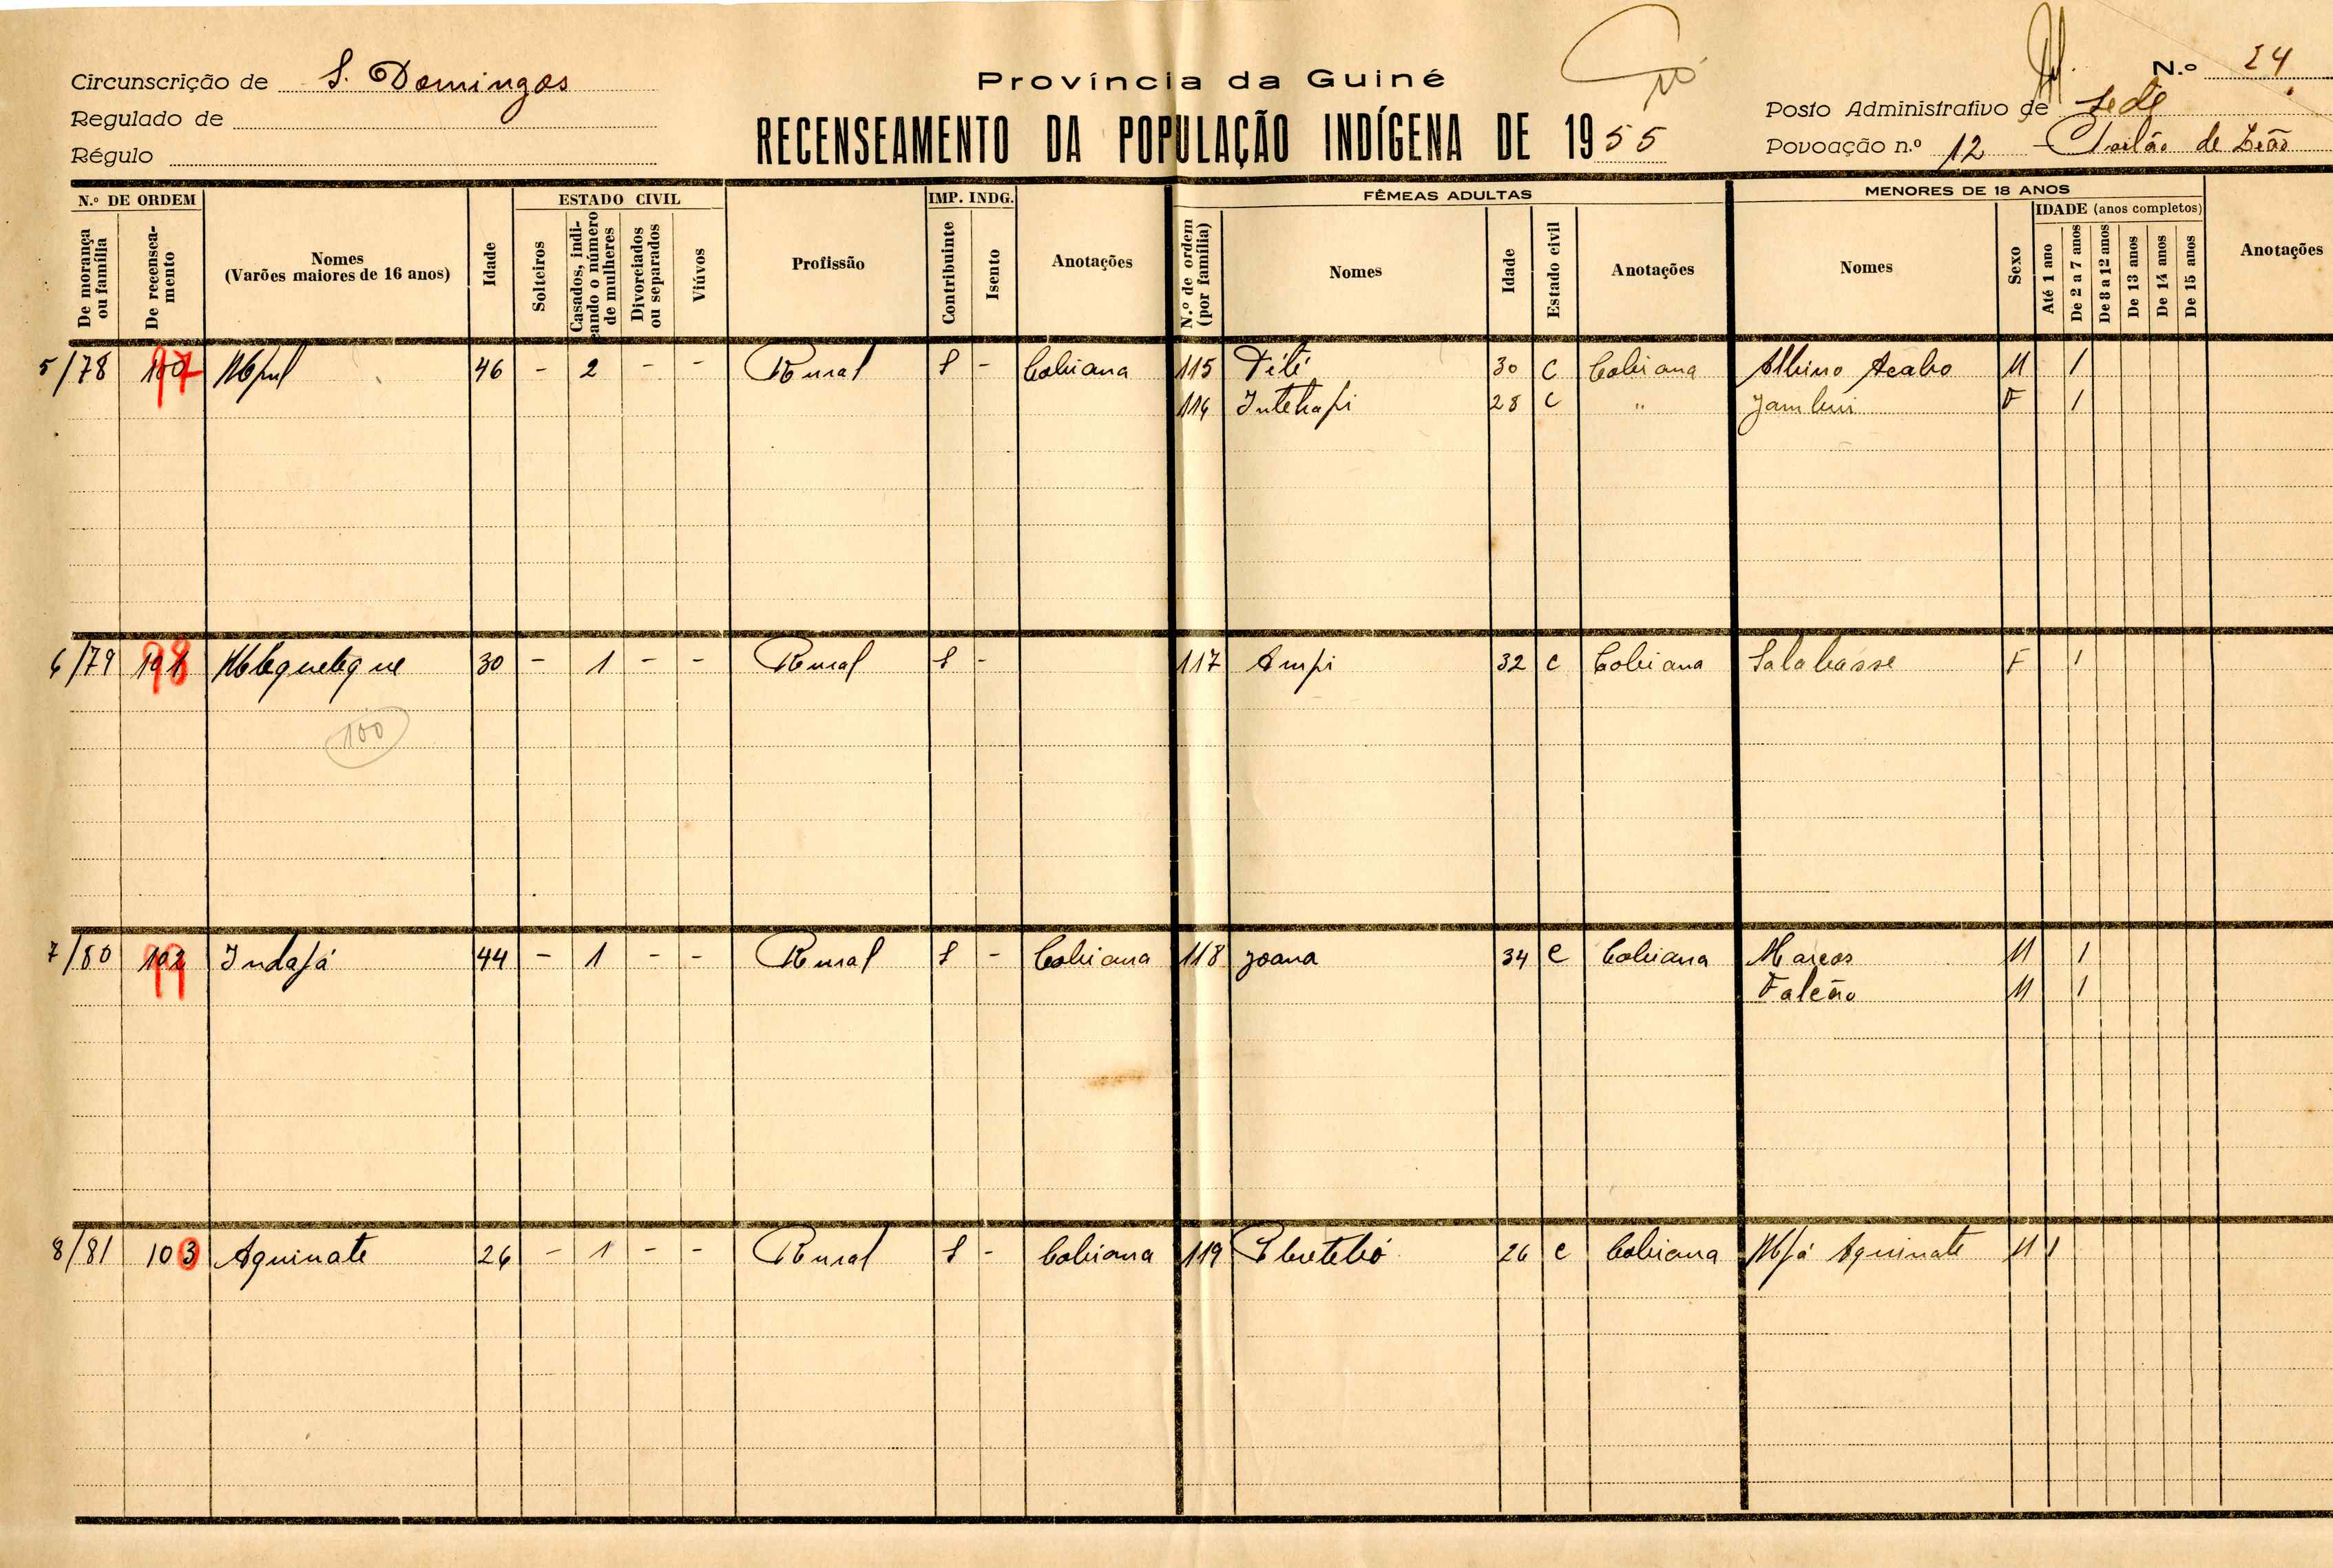 Circunscrição de S. Domingos
Regulado de
Régulo
Província da Guiné
RECENSEAMENTO DA POPULAÇÃO INDÍGENA DE 1955
N.º 24
Posto Administrativo de Sede
Povoação n.º 12 - de Leão
N.º DE ORDEM
De morança ou família
De recenseamento
Nomes
(Varões maiores de 16 anos)
Idade
ESTADO CIVIL
Solteiros
Casados, indicando o número de mulheres
Divorciados ou separados
Viúvos
Profissão
IMP. INDG.
Contribuinte
Isento
Anotações
FÊMEAS ADULTAS
N.º de ordem (por família)
Nomes
Idade
Estado civil
Anotações
MENORES DE 18 ANOS
Nomes
Sexo
IDADE (anos completos)
Até 1 ano
De 2 a 7 anos
De 8 a 12 anos
De 13 anos
De 14 anos
De 15 anos
Anotações
5/78 100 97 46 - 2 - - Rural 1 - Cobiana 115 30 C Cobiana Albino Acabo M 1
116 28 C " F 1
6/79 101 98 30 - 1 - - Rural 1 - 117 Ampi 32 C Cobiana Salabasse F 1
100
7/80 102 99 Indafá 44 - 1 - - Rural 1 - Cobiana 118 Joana 34 C Cobiana Marcos M 1
Falcão M 1
8/81 103 Aquinate 26 - 1 - - Rural 1 - Cobiana 119 26 C Cobiana Aquinate M 1